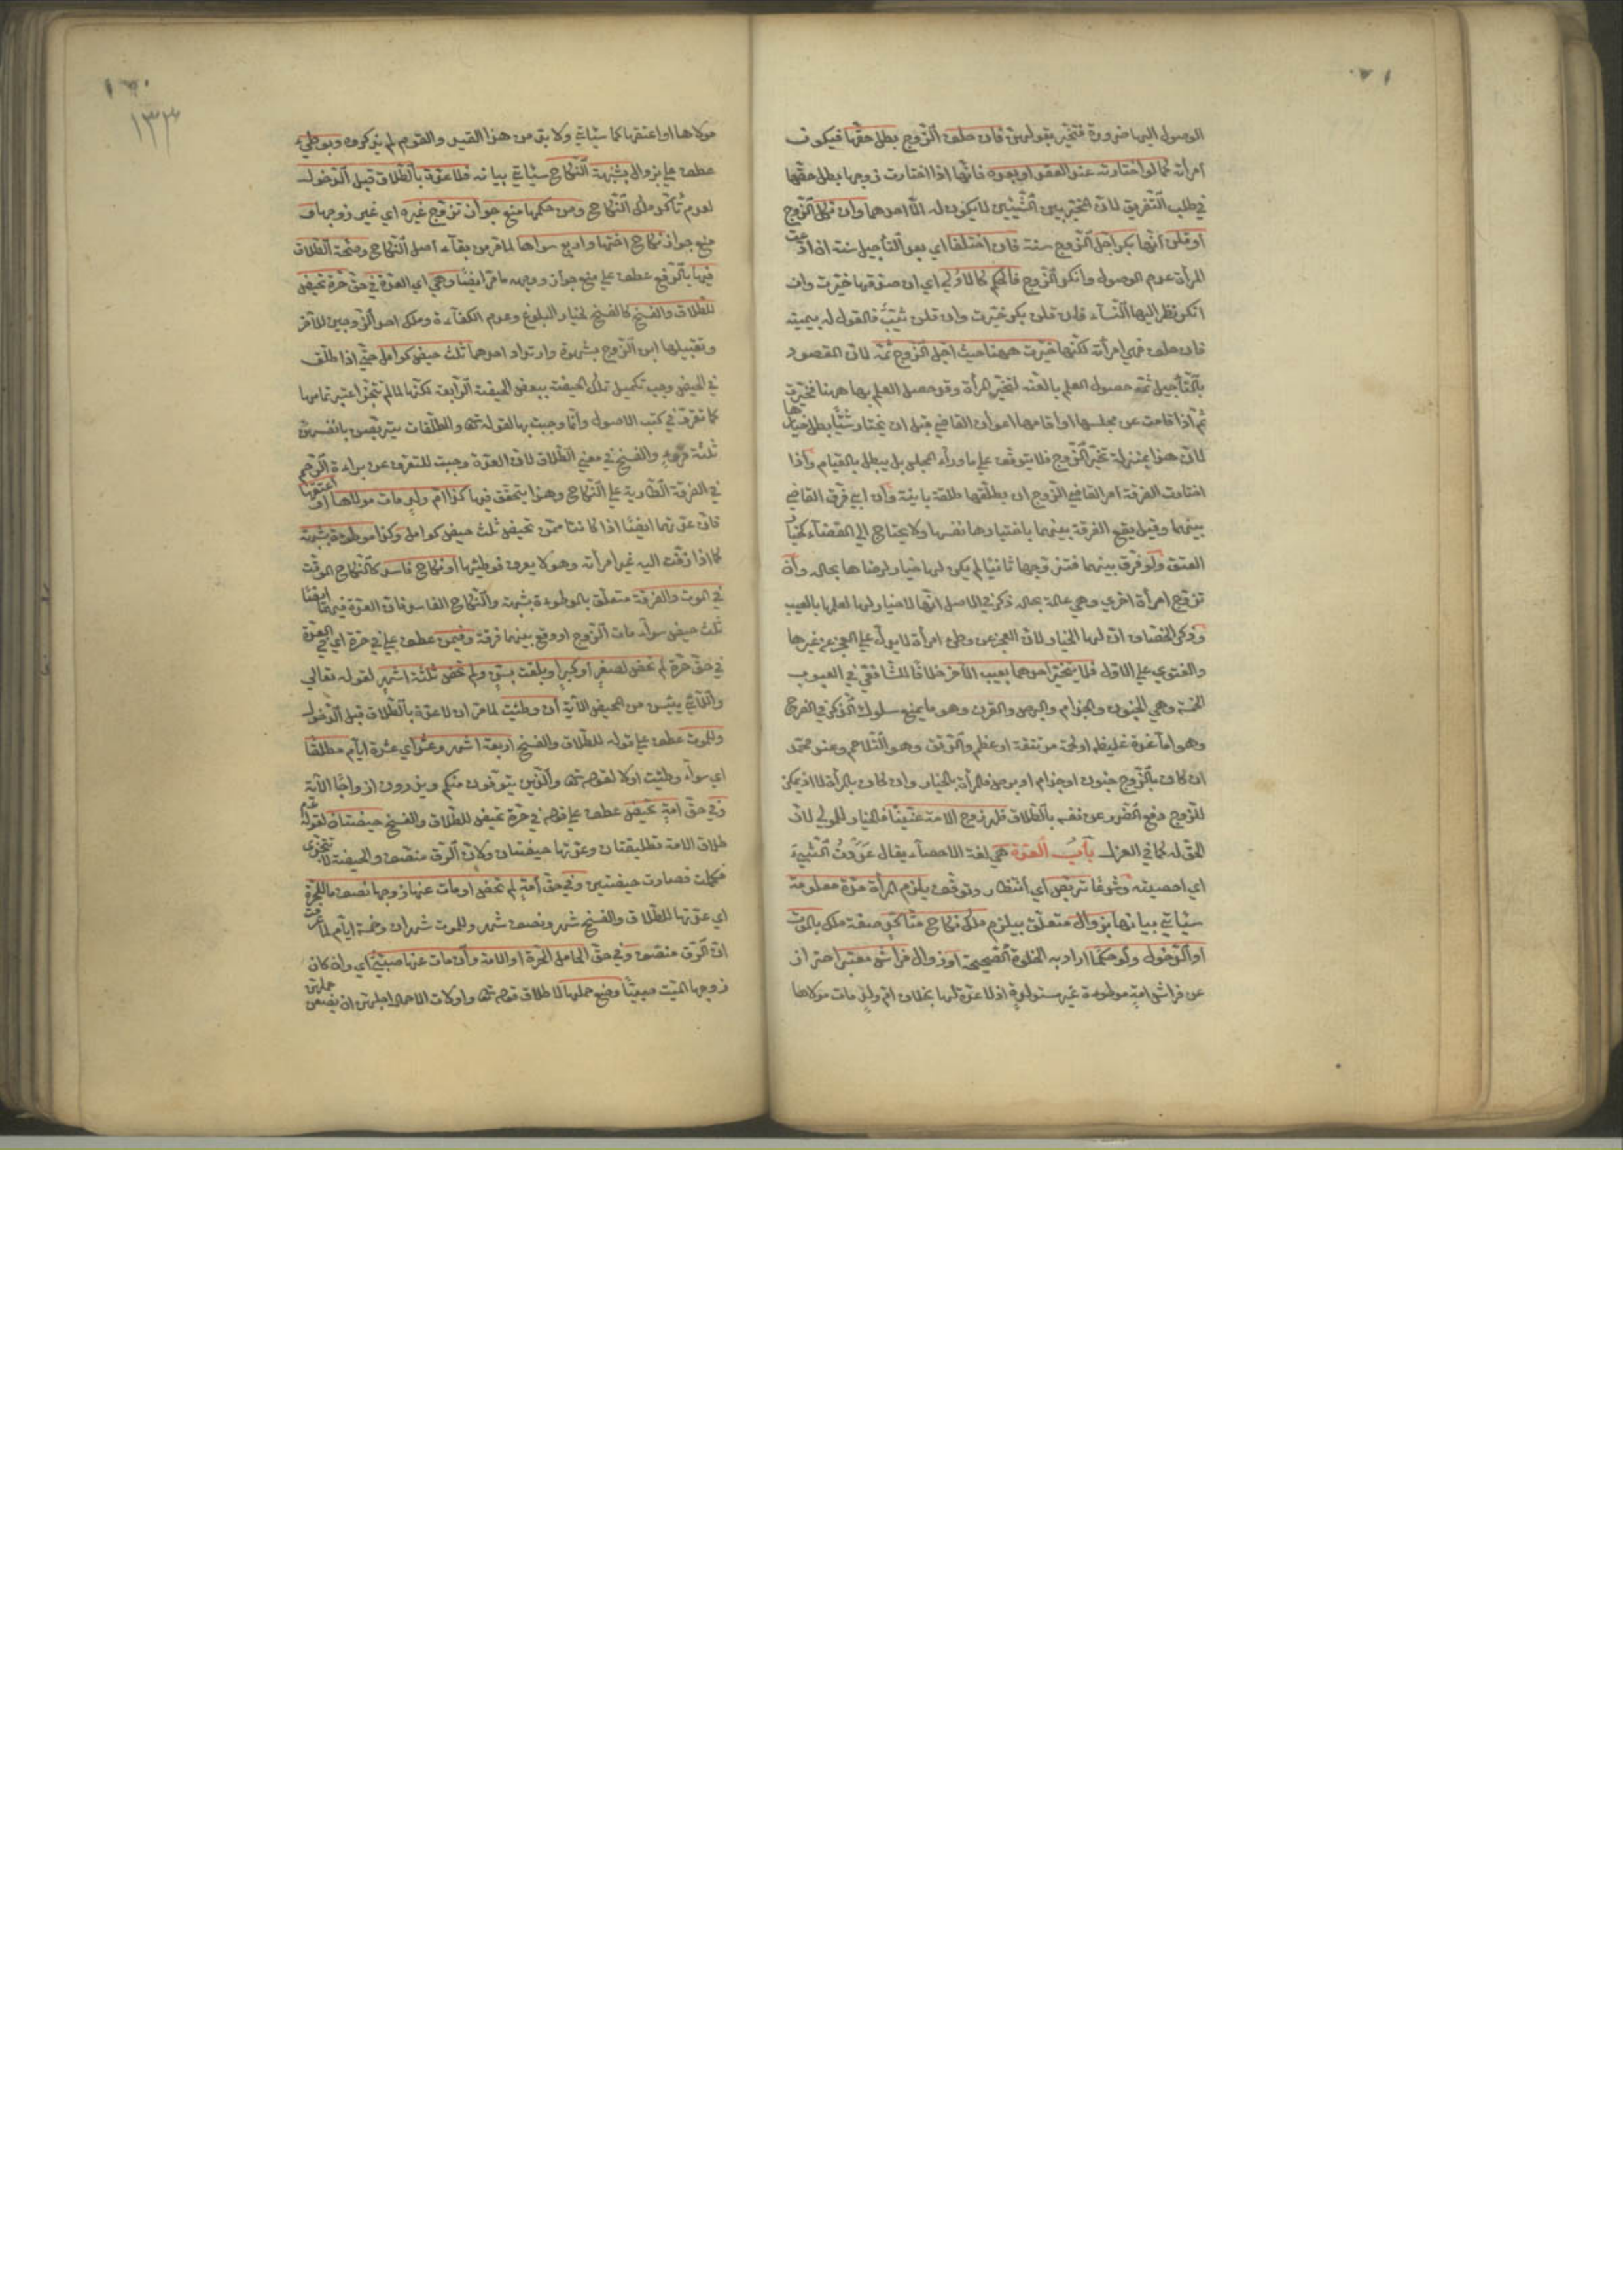 الوصول اليها ضرورة فتخير بقولهن فان حلف الزوج بطل حقها فيكون
امرأته كما لو اختارته عند العقد او بعده فانها اذا اختارت زوجها بطل حقها
في طلب التفريق لان المخير بين الشيئين لا يكون له الا احدهما وان نكل الزوج
او قلن انها بكر اجل الزوج سنة فان اختلفا اي بعد التأجيل سنة اذ ادعت
المرأة عدم الوصول وانكر الزوج فالحكم كالاول اي ان صدقها خيرت وان
انكر نظر اليها النساء فان قلن بكر خيرت وان قلن ثيب فالقول له بيمينه
فان حلف فهي امرأته لكنها خيرت ههنا حيث اجل الزوج ثمه لان المقصود
بالتأجيل ثمه حصول العلم بالعنه لتخير المرأة وقد حصل العلم بها ههنا فخيرت
ثم اذا قامت عن مجلسها او اقامها اعوان القاضي قبل ان تختار شيئا بطل خيارها
لان هذا بمنزلة تخير الزوج فلا يتوقف على ما وراء المجلس بل يبطل بالقيام واذا
اختارت الفرقة امر القاضي الزوج ان يطلقها طلقة بائنة وان ابى فرق القاضي
بينهما وقيل يقع الفرقة بينهما باختيارها نفسها ولا يحتاج الى القضاء كخيار
العتق ولو فرق بينهما فتزوجها ثانيا لم يكن لها خيار لرضاها بحاله وان
تزوج امرأة اخرى وهي عالمة بحاله ذكر في الاصل انها لا خيار لها لعلمها بالعيب
وذكر الخصاف ان لها الخيار لان العجز عن وطئ امرأة لا يدل على العجز عن غيرها
والفتوى على الاول فلا يتخير احدهما بعيب الآخر خلافا للشافعي في العيوب
الخمسة وهي الجنون والجذام والبرص والقرن وهو ما يمنع سلوك الذكر في الفرج
وهو اما غدة غليظة او لحمة مرتتقة او عظم والرتق وهو التلاحم وعند محمد
ان كان بالزوج جنون او جذام او برص فالمرأة بالخيار وان كان بالمرأة لا اذ يمكن
للزوج دفع الضرر عن نفسه بالطلاق قلو زوج الامة عنينا فالخيار للمولى لان
الحق له كما في العزل باب العدة هي لغة الاحصاء يقال عددت الشيء
اي احصيته وشرعا تربص اي انتظار وتوقف يلزم المرأة مدة معلومة
سيأتي بيانها بزوال متعلق بيلزم ملك نكاح متأكد صفة ملك بالموت
او الدخول ولو حكما اراد به الخلوة الصحيحة او زوال فراش معتبر احتراز
عن فراش امة موطوءة غير مستولدة اذ لا عدة لها بخلاف ام ولد مات مولاها
١٣٣
مولاها او اعتقها كما سيأتي ولا بد من هذا القيد والقوم لم يذكروه وبوطئ
عطف على بزوال بشبهة النكاح سيأتي بيانه فلا عدة بالطلاق قبل الدخول
لعدم تأكد ملك النكاح ومن حكمها منع جواز تزوج غيره اي غير زوجها و
منع جواز نكاح اختها واربع سواها لما مر من بقاء اصل النكاح وصحة الطلاق
فيها بالرفع عطف على منع جواز ووجهه ما مر ايضا وهي اي العدة في حق حرة تحيض
للطلاق والفسخ كالفسخ لخيار البلوغ وعدم الكفاءة وملك احد الزوجين للآخر
وتقبيلها ابن الزوج بشهوة وارتداد احدهما ثلث حيض كوامل حتى اذا طلق
في الحيض وجب تكميل تلك الحيضة ببعض الحيضة الرابعة لكنها لما لم تتجز اعتبر تمامها
كما تقرر في كتب الاصول وانما وجبت بها لقوله تعالى والمطلقات يتربصن بانفسهن
ثلثة قروء والفسخ في معنى الطلاق لان العدة وجبت للتعرف عن براءة الرحم
في الفرقة الطارية على النكاح وهذا يتحقق فيها كذا ام ولد مات مولاها او اعتقها
فان عدتها ايضا اذا كانت ممن تحيض ثلث حيض كوامل وكذا موطوءة بشبهة
كما اذا زفت اليه غير امرأته وهو لا يعرف فوطئها او نكاح فاسد كالنكاح الموقت
في الموت والفرقة متعلق بالموطوءة بشبهة والنكاح الفاسد فان العدة فيهما ايضا
ثلث حيض سواء مات الزوج او وقع بينهما فرقة وفيمن عطف على في حرة اي العدة
في حق حرة لم تحض لصغر او كبر او بلغت بسن ولم تحض ثلثة اشهر لقوله تعالى
واللائي يئسن من المحيض الآية ان وطئت لما مر ان لا عدة بالطلاق قبل الدخول
وللموت عطف على قوله للطلاق والفسخ اربعة اشهر وعشر اي عشرة ايام مطلقا
اي سواء وطئت او لا لقوله تعالى والذين يتوفون منكم ويذرون ازواجا الآية
وفي حق امة تحيض عطف على قوله في حرة تحيض للطلاق والفسخ حيضتان لقوله عم
طلاق الامة تطليقتان وعدتها حيضتان ولان الرق منصف والحيضة لا تتجزى
فكملت فصارت حيضتين وفي حق امة لم تحض او مات عنها زوجها نصف ما للحرة
اي عدتها للطلاق والفسخ شهر ونصف شهر وللموت شهران وخمسة ايام لما عرفت
ان الرق منصف وفي حق الحامل الحرة او الامة وان مات عنها صبي اي وان كان
زوجها الميت صبيا وضع حملها لاطلاق قوله تعالى واولات الاحمال اجلهن ان يضعن حملهن